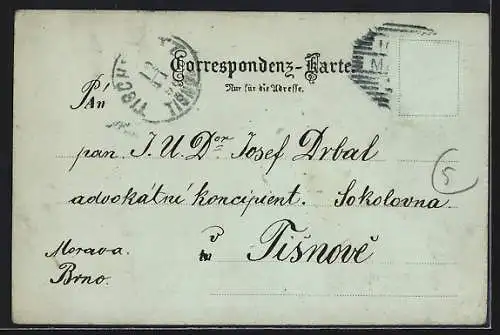 Correspondenz-Karte
Nur für die Adresse.
Pán
pan J. U. Dor Josef Drbal
advokátní koncipient. Sokolovna
v Tišnově
Morava.
Brno.
5